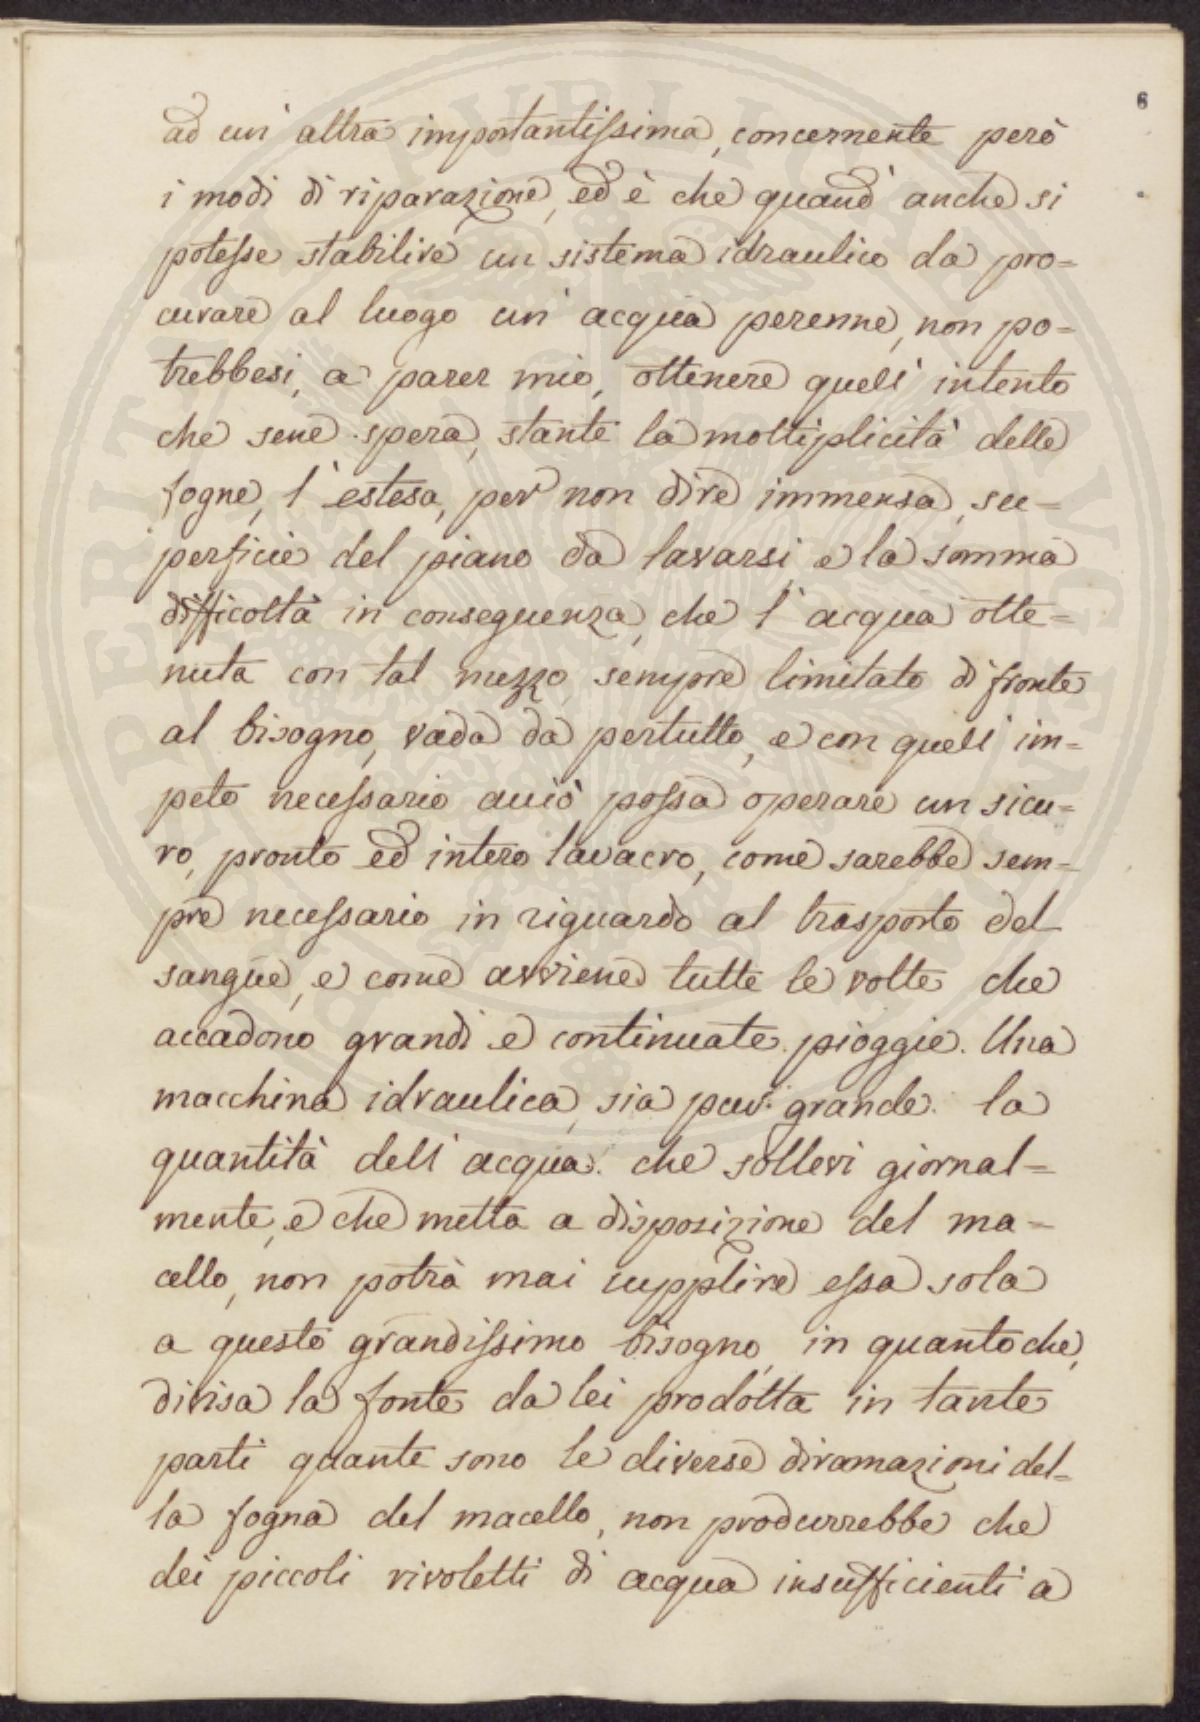 6
ad un' altra importantissima, concernente però
i modi di riparazione, ed è che quand' anche si
potesse stabilire un sistema idraulico da pro=
curare al luogo un' acqua perenne, non po=
trebbesi, a parer mio, ottenere quell' intento
che sene spera, stante la moltiplicità delle
fogne, l' estesa, per non dire immensa, su=
perficie del piano da lavarsi, e la somma
difficoltà in conseguenza, che l' acqua otte=
nuta con tal mezzo, sempre limitato di fronte
al bisogno, vada da pertutto, e con quell' im=
peto necessario auiò possa operare un sicu=
ro, pronto ed intero lavacro, come sarebbe sem=
pre necessario in riguardo al trasporto del
sangue, e come avviene tutte le volte che
accadono grandi e continuate pioggie. Una
macchina idraulica, sia pur grande la
quantità dell' acqua che sollevi giornal=
mente, e che metta a disposizione del ma=
cello, non potrà mai supplire essa sola
a questo grandissimo bisogno, in quantoche,
divisa la fonte da lei prodotta in tante
parti quante sono le diverse diramazioni del=
la fogna del macello, non produrrebbe che
dei piccoli rivoletti di acqua insufficienti a
PERITA PVBLICAE AVGENDA